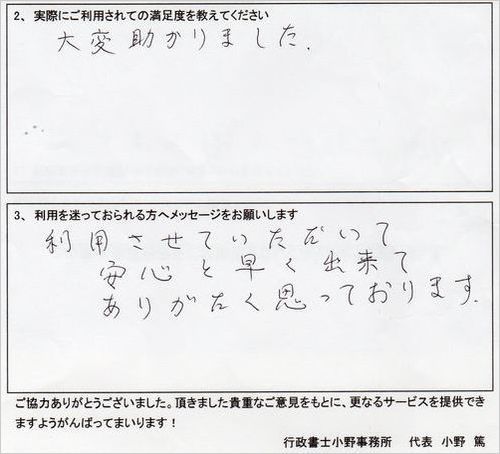 2、実際にご利用されての満足度を教えてください
大変助かりました.
3、利用を迷っておられる方へメッセージをお願いします
利用させていただいて
安心と早く出来て
ありがたく思っております.
ご協力ありがとうございました。頂きました貴重なご意見をもとに、更なるサービスを提供でき
ますようがんばってまいります！
行政書士小野事務所 代表 小野 篤